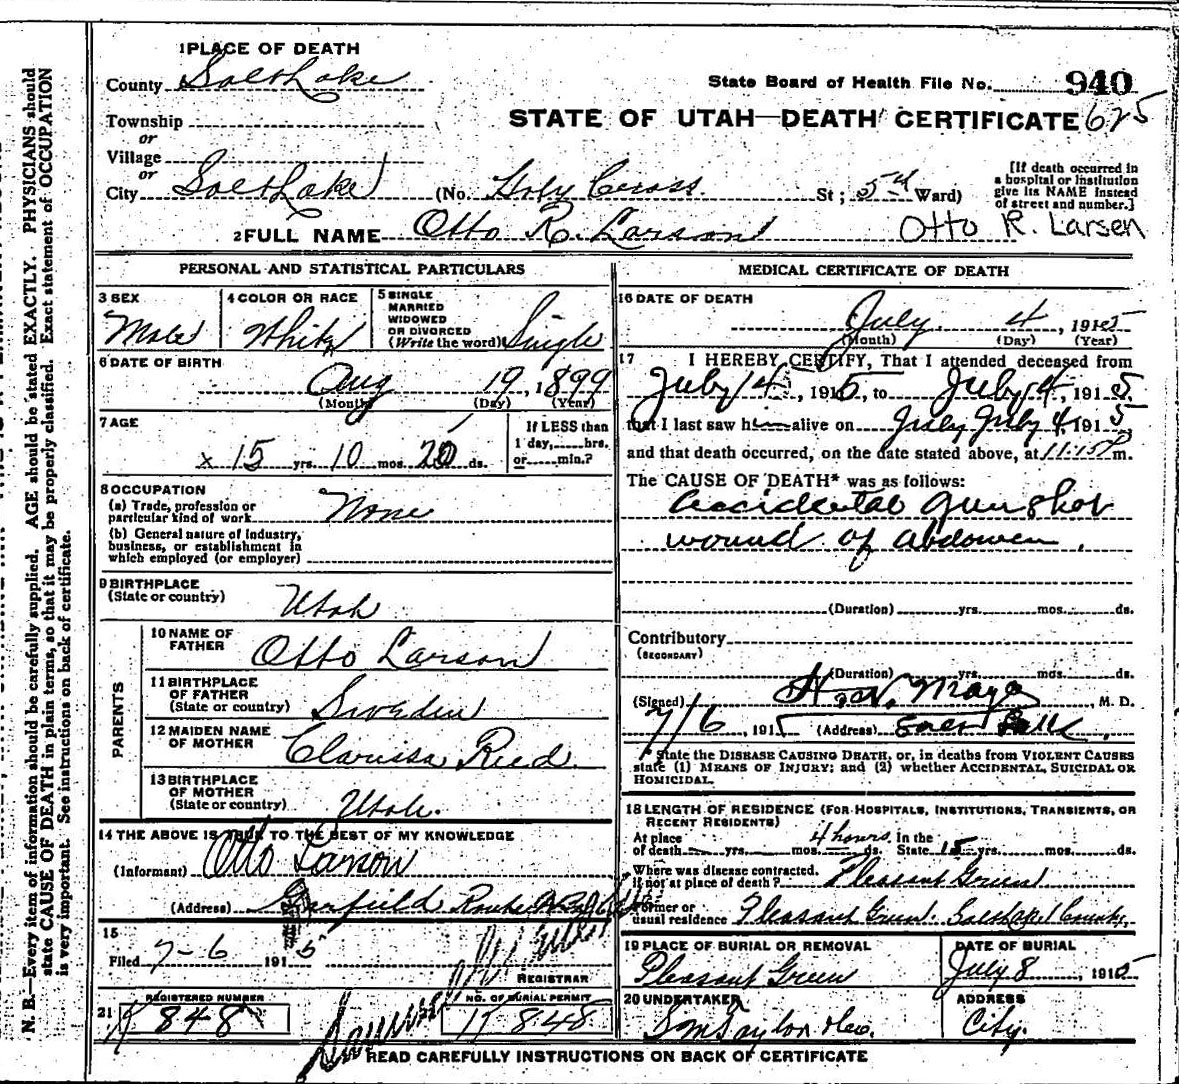 N. B.—Every item of information should be carefully supplied. AGE should be stated EXACTLY. PHYSICIANS should
state CAUSE OF DEATH in plain terms, so that it may be properly classified. Exact statement of OCCUPATION
is very important. See instructions on back of certificate.
1 PLACE OF DEATH
County Salt Lake
State Board of Health File No. 940
STATE OF UTAH—DEATH CERTIFICATE 625
Township
or
Village
or
City Salt Lake (No. Holy Cross St; 5th Ward)
[If death occurred in
a hospital or institution
give its NAME instead
of street and number.]
2 FULL NAME Otto R. Larson Otto R. Larsen
PERSONAL AND STATISTICAL PARTICULARS
3 SEX Male
4 COLOR OR RACE White
5 SINGLE
MARRIED
WIDOWED
OR DIVORCED
(Write the word) Single
6 DATE OF BIRTH
Aug 19, 1899
(Month) (Day) (Year)
7 AGE
x 15 yrs. 10 mos. 20 ds.
If LESS than
1 day, hrs.
or min.?
8 OCCUPATION
(a) Trade, profession or
particular kind of work None
(b) General nature of industry,
business, or establishment in
which employed (or employer)
9 BIRTHPLACE
(State or country) Utah
PARENTS
10 NAME OF
FATHER Otto Larson
11 BIRTHPLACE
OF FATHER
(State or country) Sweden
12 MAIDEN NAME
OF MOTHER Clarissa Reed.
13 BIRTHPLACE
OF MOTHER
(State or country) Utah.
14 THE ABOVE IS TRUE TO THE BEST OF MY KNOWLEDGE
(Informant) Otto Larson
(Address) Garfield
15
Filed 7-6 1915
REGISTRAR
21 REGISTERED NUMBER
K 848
NO. OF BURIAL PERMIT
K 848
MEDICAL CERTIFICATE OF DEATH
16 DATE OF DEATH
July 4, 1915
(Month) (Day) (Year)
17 I HEREBY CERTIFY, That I attended deceased from
July 4, 1915, to July 4, 1915.
that I last saw him alive on July July 4, 1915
and that death occurred, on the date stated above, at 11:15 P m.
The CAUSE OF DEATH* was as follows:
accidental gun shot
wound of abdomen.
(Duration) yrs. mos. ds.
Contributory
(SECONDARY)
(Duration) yrs. mos. ds.
(Signed) Mayo, M. D.
7/6, 1915 (Address)
*State the DISEASE CAUSING DEATH, or, in deaths from VIOLENT CAUSES
state (1) MEANS OF INJURY; and (2) whether ACCIDENTAL, SUICIDAL OR
HOMICIDAL.
18 LENGTH OF RESIDENCE (FOR HOSPITALS, INSTITUTIONS, TRANSIENTS, OR
RECENT RESIDENTS)
At place 4 hours. In the
of death yrs. mos. ds. State 15 yrs. mos. ds.
Where was disease contracted.
if not at place of death? Pleasant Green
Former or
usual residence Pleasant Green. Salt Lake County,
19 PLACE OF BURIAL OR REMOVAL
Pleasant Green
DATE OF BURIAL
July 8, 1915
20 UNDERTAKER
S M Taylor & Co.
ADDRESS
City.
READ CAREFULLY INSTRUCTIONS ON BACK OF CERTIFICATE